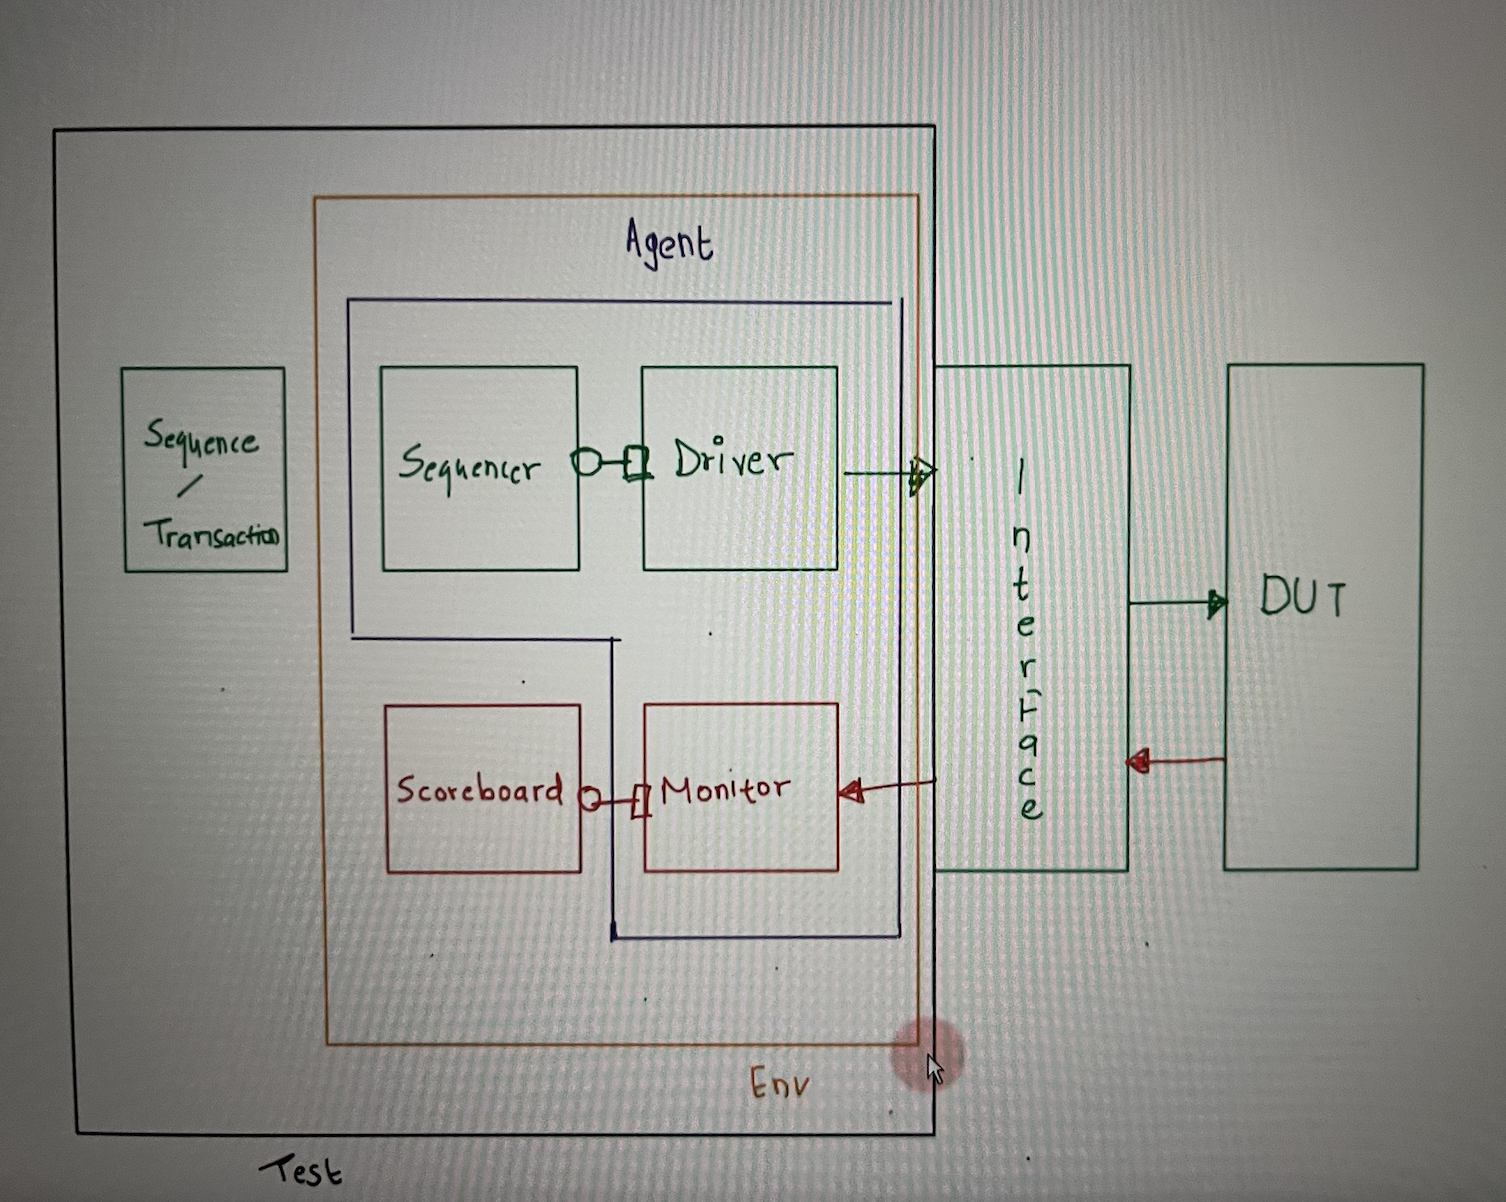 Agent
Sequence
/
Transaction
Sequencer
Driver
Interface
DUT
Scoreboard
Monitor
Env
Test